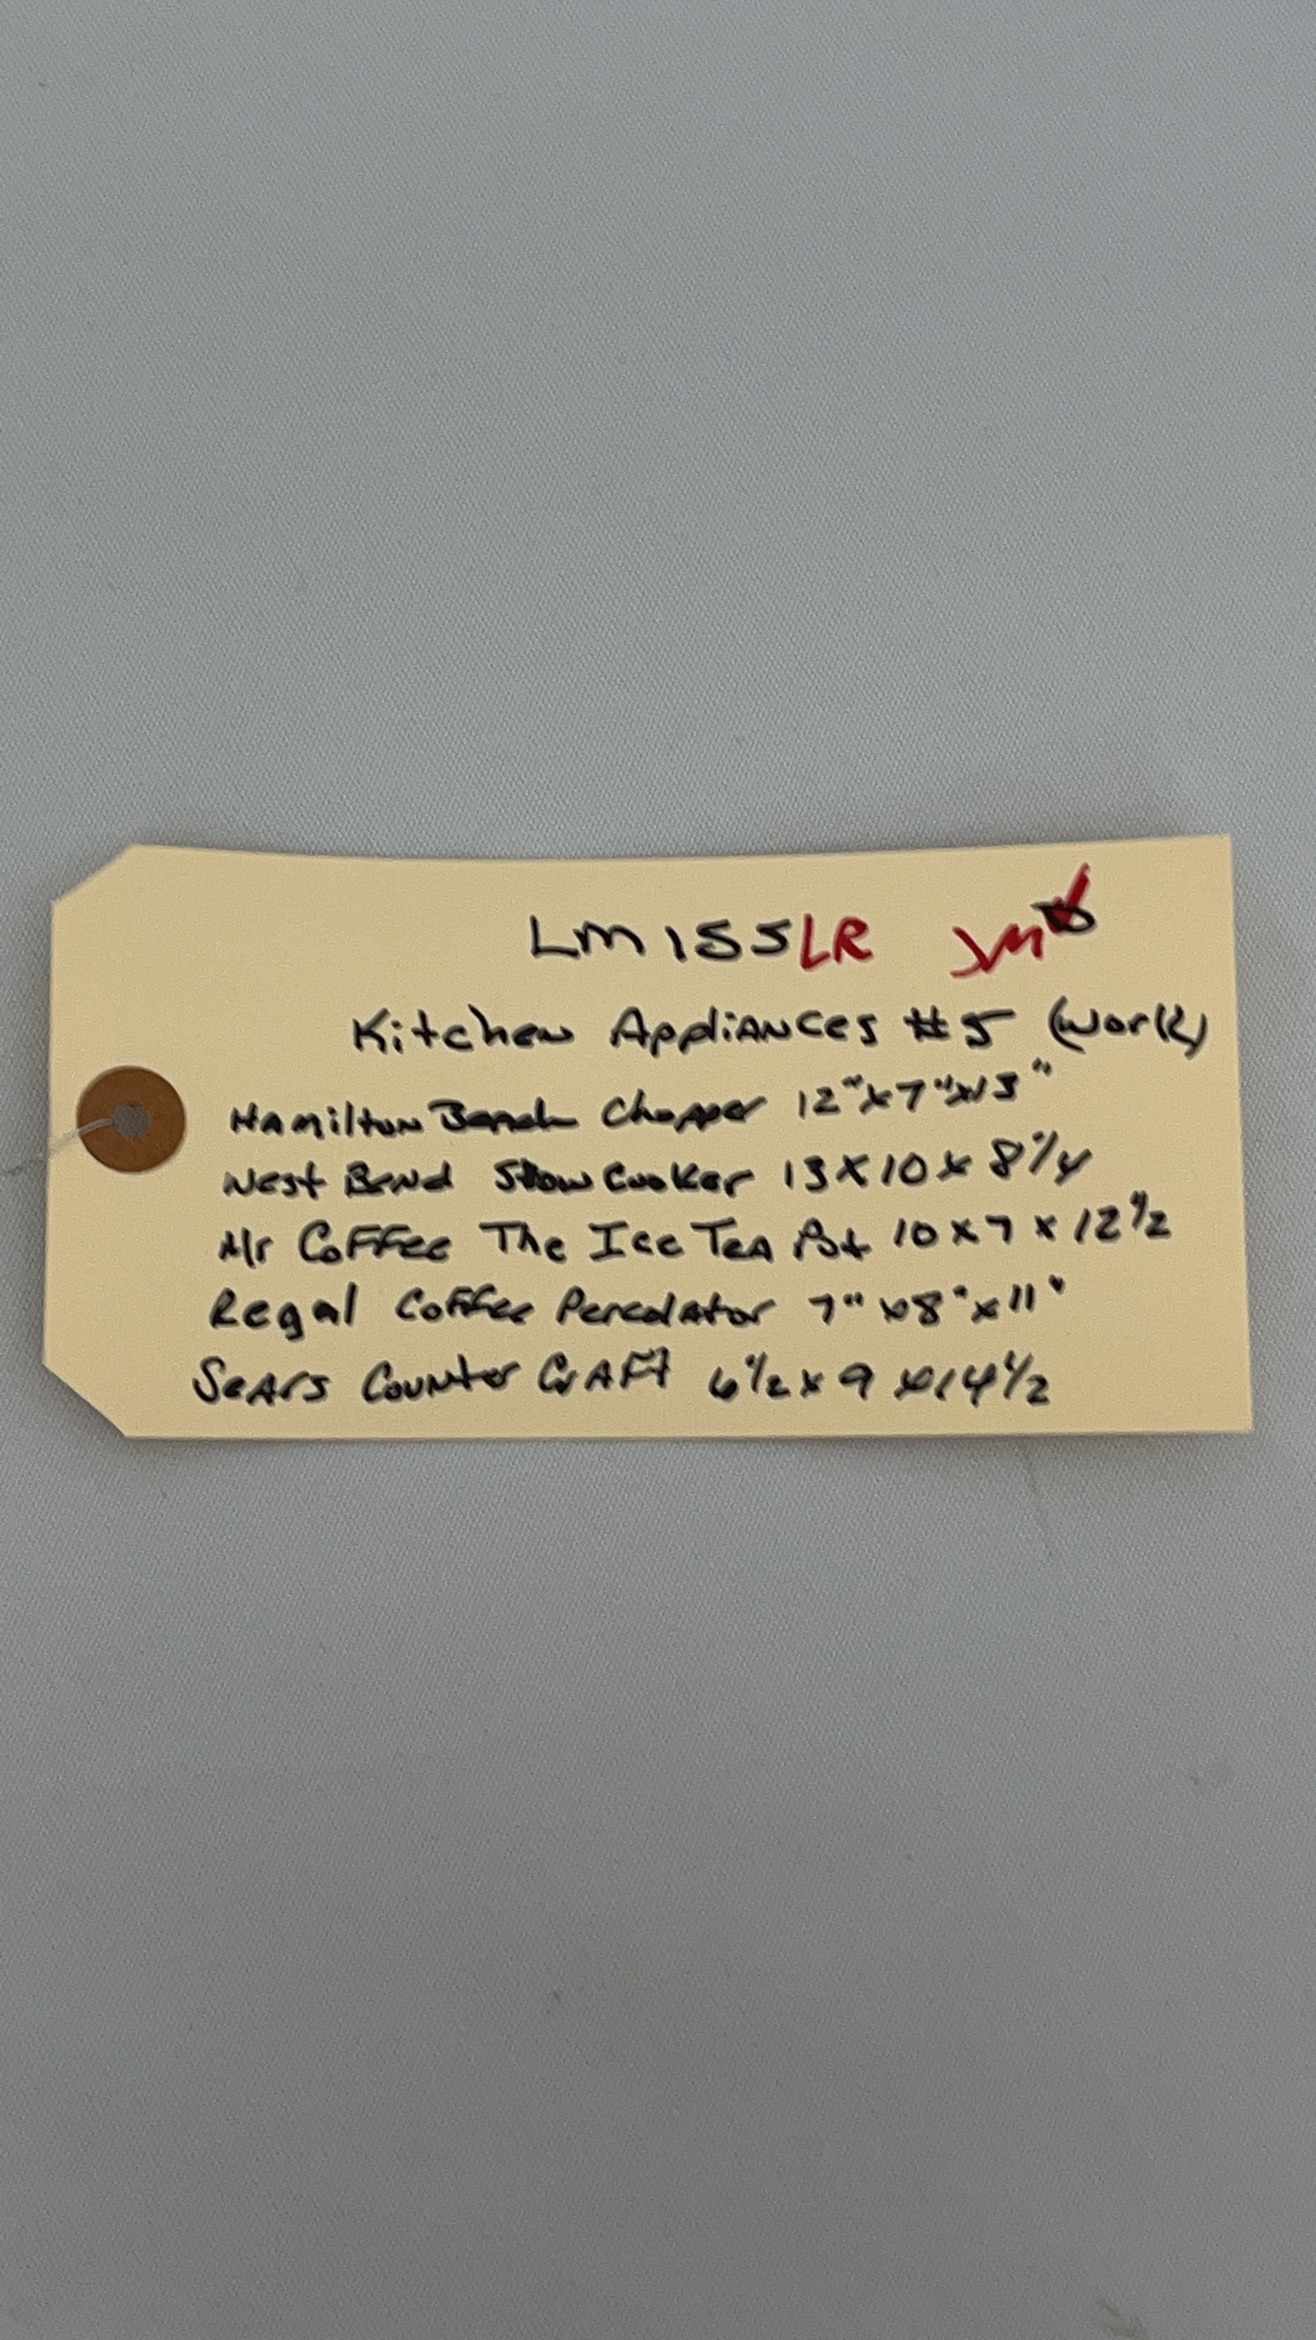 LM155LR
Kitchen Appliances #5 (work)
Hamilton Beach Chopper 12"x7"x13"
West Bend Slow Cooker 13x10x8 1/4
Mr Coffee The Ice Tea Pot 10x7x12 1/2
Regal Coffee Percolator 7"x8"x11"
Sears Counter Craft 6 1/2x9x14 1/2